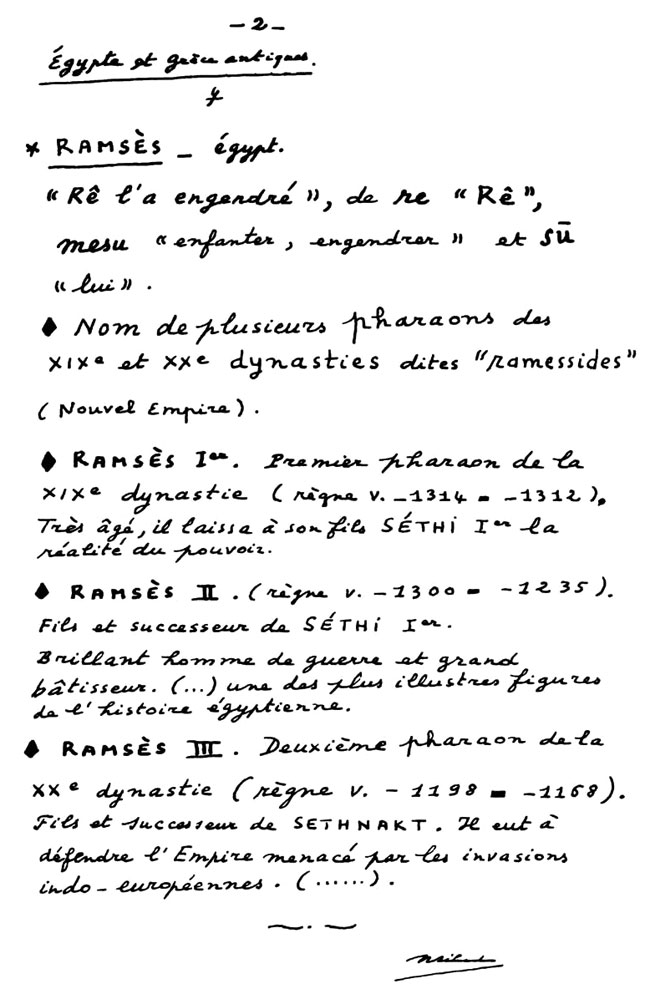 – 2 –
Égypte et Grèce antiques.
* RAMSÈS – égypt.
“Rê l'a engendré”, de re “Rê”,
mesu “enfanter, engendrer” et sū
“lui”.
♦ Nom de plusieurs pharaons des
XIXe et XXe dynasties dites “ramessides”
(Nouvel Empire).
♦ RAMSÈS Ier. Premier pharaon de la
XIXe dynastie (règne v. –1314 – –1312).
Très âgé, il laissa à son fils SÉTHI Ier la
réalité du pouvoir.
♦ RAMSÈS II. (règne v. –1300 – –1235).
Fils et successeur de SÉTHI Ier.
Brillant homme de guerre et grand
bâtisseur. (...) une des plus illustres figures
de l'histoire égyptienne.
♦ RAMSÈS III. Deuxième pharaon de la
XXe dynastie (règne v. –1198 – –1168).
Fils et successeur de SETHNAKT. Il eut à
défendre l'Empire menacé par les invasions
indo-européennes. (......).